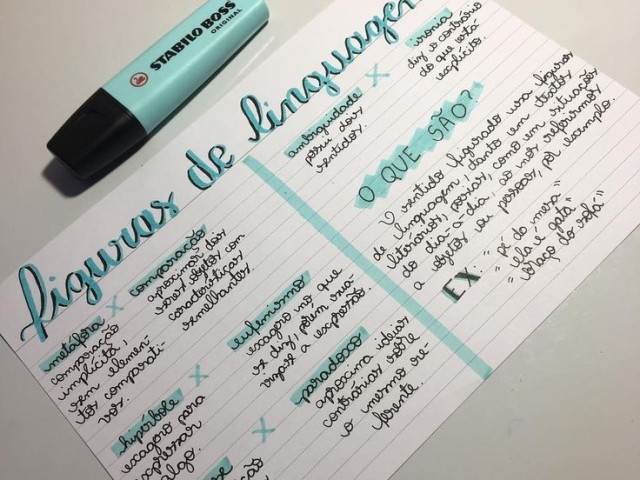 STABILO BOSS
ORIGINAL
figuras de linguagem
metáfora
comparação
implícita,
sem elemen-
tos comparati-
vos.
x
comparação
aproximar dois
seres objetos com
características
semelhantes
hipérbole
exagero para
expressar
algo.
x
eufemismo
exagero no que
se diz, porém sua-
viza a expressão.
x
paradoxo
aproxima idéias
contrárias sobre
o mesmo re-
ferente.
ambiguidade
possui dois
sentidos.
x
ironia
diz o contrário
do que está
explícito.
O QUE SÃO?
O sentido figurado usa figuras
de linguagem, tanto em textos
literários, poesias, como em situações
do dia-a-dia, ao nos referirmos
a objetos ou pessoas, por exemplo.
EX: "pé da mesa"
"ela é gata"
"braço do sofá"